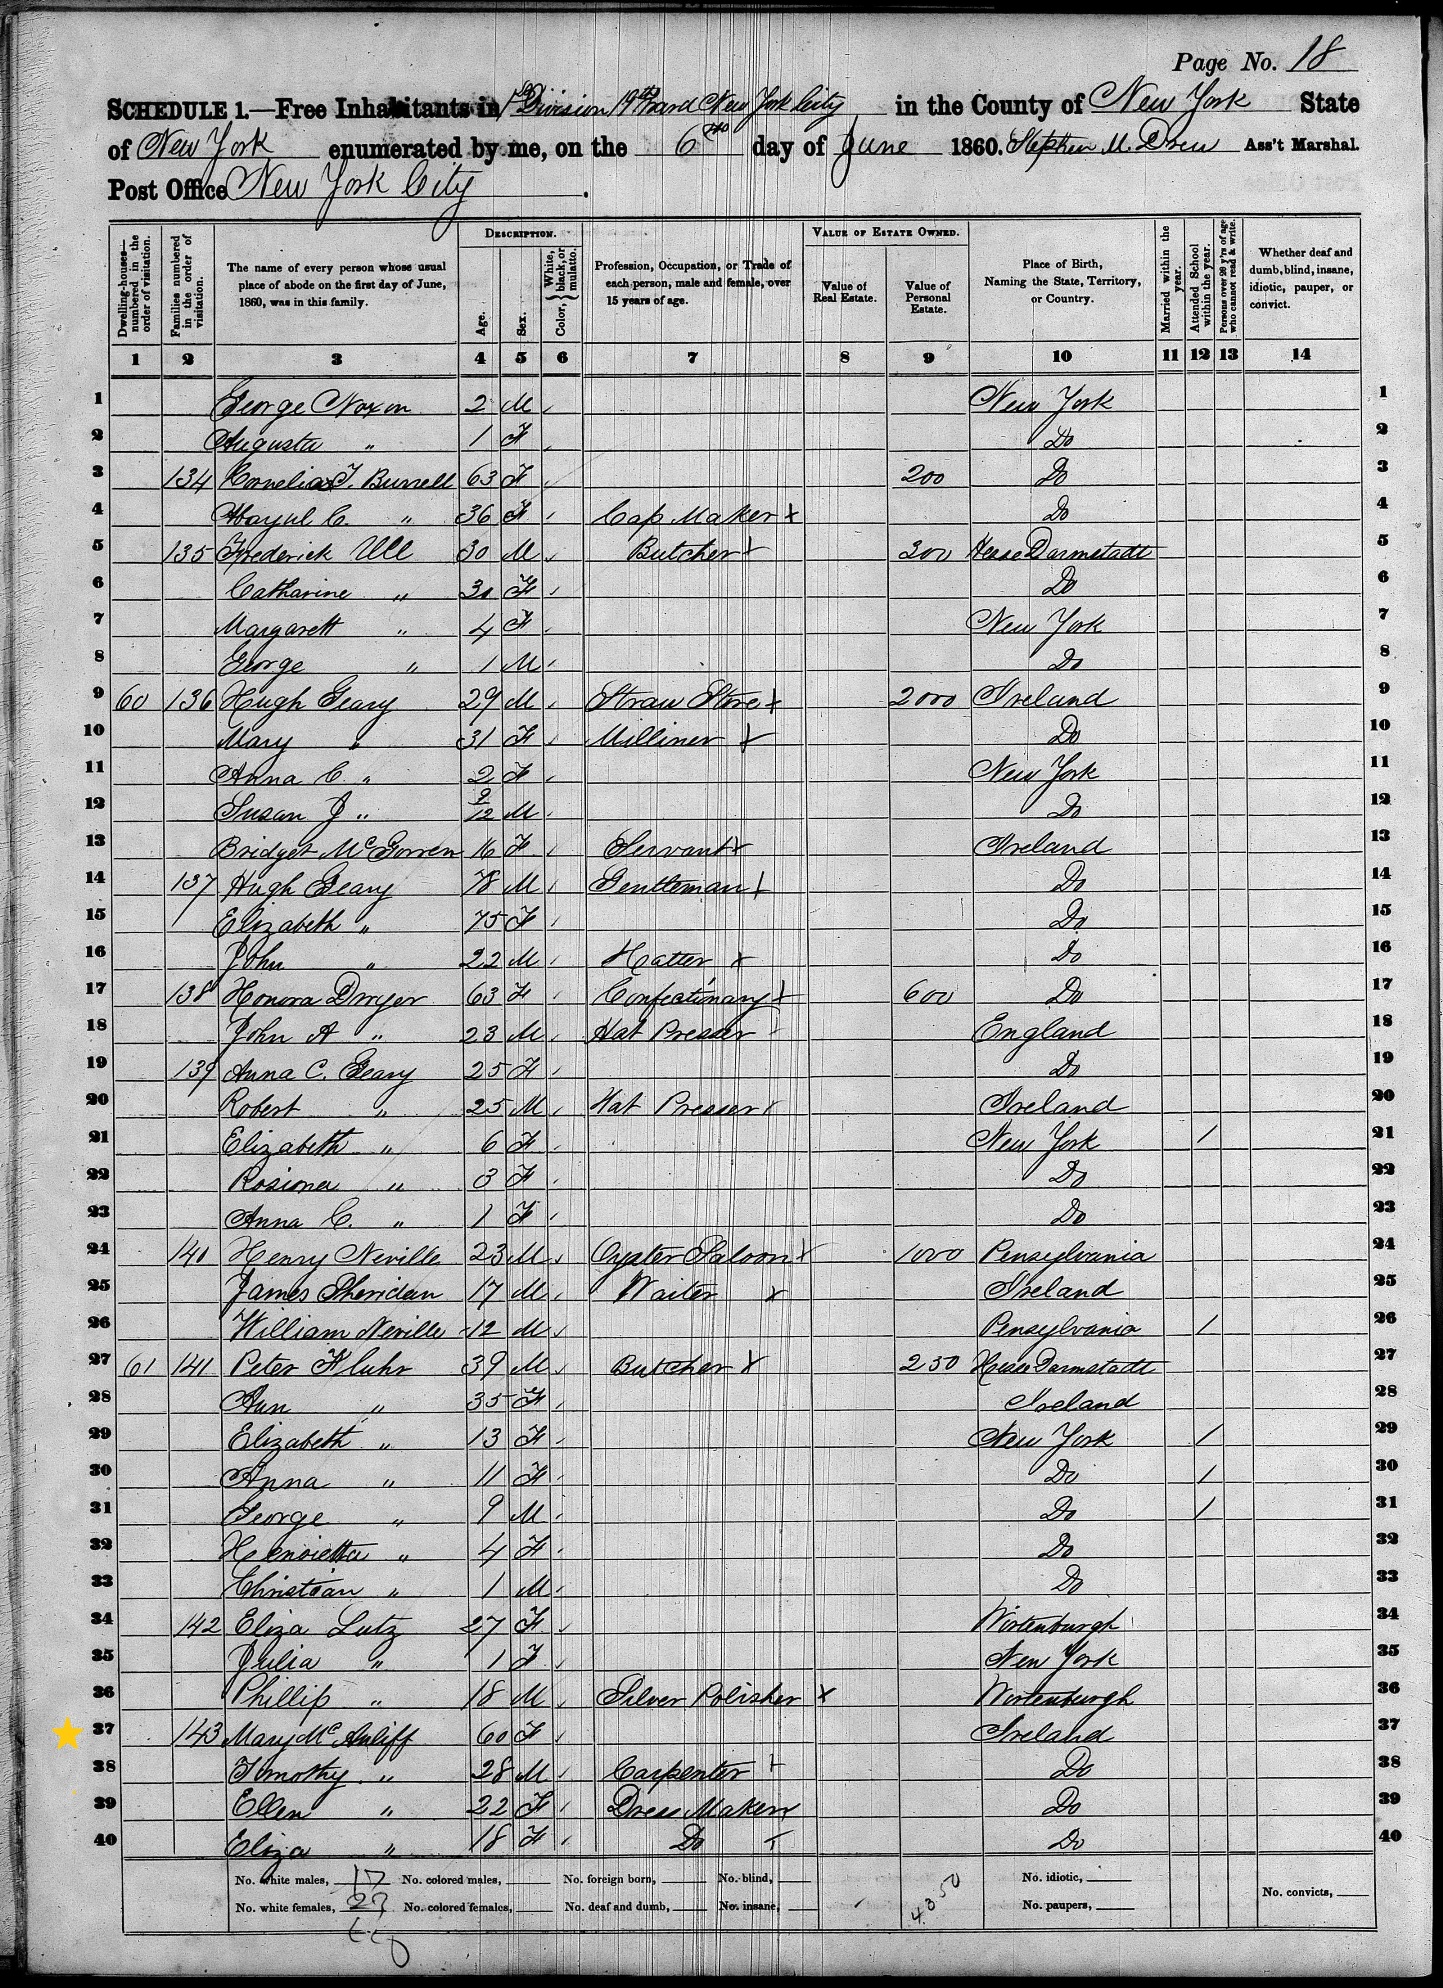 Page No. 18
SCHEDULE 1.—Free Inhabitants in 1st Division 19th Ward New York City in the County of New York State
of New York enumerated by me, on the 6th day of June 1860. Stephen M. Drew Ass't Marshal.
Post Office New York City.
Dwelling-houses—numbered in the order of visitation.
Families numbered in the order of visitation.
The name of every person whose usual place of abode on the first day of June, 1860, was in this family.
DESCRIPTION.
Age.
Sex.
Color, { White, black, or mulatto.
Profession, Occupation, or Trade of each person, male and female, over 15 years of age.
VALUE OF ESTATE OWNED.
Value of Real Estate.
Value of Personal Estate.
Place of Birth, Naming the State, Territory, or Country.
Married within the year.
Attended School within the year.
Persons over 20 y'rs of age who cannot read & write.
Whether deaf and dumb, blind, insane, idiotic, pauper, or convict.
1 2 3 4 5 6 7 8 9 10 11 12 13 14
1 George Noxon 2 M New York 1
2 Augusta " 1 F Do 2
3 134 Cornelia T. Burrell 63 F 200 Do 3
4 C. " 36 F Cap Maker x Do 4
5 135 Frederick Ull 30 M Butcher x 300 Hesse Darmstadt 5
6 Catharine " 30 F Do 6
7 Margarett " 4 F New York 7
8 George " 1 M Do 8
9 60 136 Hugh Geary 29 M Straw Store x 2000 Ireland 9
10 Mary " 31 F Milliner x Do 10
11 Anna C. " 2 F New York 11
12 Susan J " 9/12 M Do 12
13 Bridget McGorren 16 F Servant x Ireland 13
14 137 Hugh Geary 78 M Gentleman x Do 14
15 Elizabeth " 75 F Do 15
16 John " 22 M Hatter x Do 16
17 138 Honora Dwyer 63 F Confectionary x 600 Do 17
18 John A " 23 M Hat Presser England 18
19 139 Anna C. Geary 25 F Do 19
20 Robert " 25 M Hat Presser x Ireland 20
21 Elizabeth " 6 F New York / 21
22 Rosiona " 3 F Do 22
23 Anna C. " 1 F Do 23
24 140 Henry Neville 23 M Oyster Saloon x 1000 Pensylvania 24
25 James Sheridan 17 M Waiter x Ireland 25
26 William Neville 12 M Pensylvania / 26
27 61 141 Peter Fluhr 39 M Butcher x 250 Hesse Darmstadt 27
28 Ann " 35 F Ireland 28
29 Elizabeth " 13 F New York / 29
30 Anna " 11 F Do / 30
31 George " 9 M Do / 31
32 Henrietta " 4 F Do 32
33 Christian " 1 M Do 33
34 142 Eliza Lutz 27 F Wirtenburgh 34
35 Julia " 1 F New York 35
36 Phillip " 18 M Silver Polisher x Wirtenburgh 36
37 143 Mary McAuliff 60 F Ireland 37
38 Timothy " 28 M Carpenter x Do 38
39 Ellen " 22 F Dress Maker x Do 39
40 Eliza " 18 F Do x Do 40
No. white males, 17 No. colored males, No. foreign born, No. blind, No. idiotic,
No. white females, 23 No. colored females, No. deaf and dumb, No. insane, 4350 No. paupers, No. convicts,